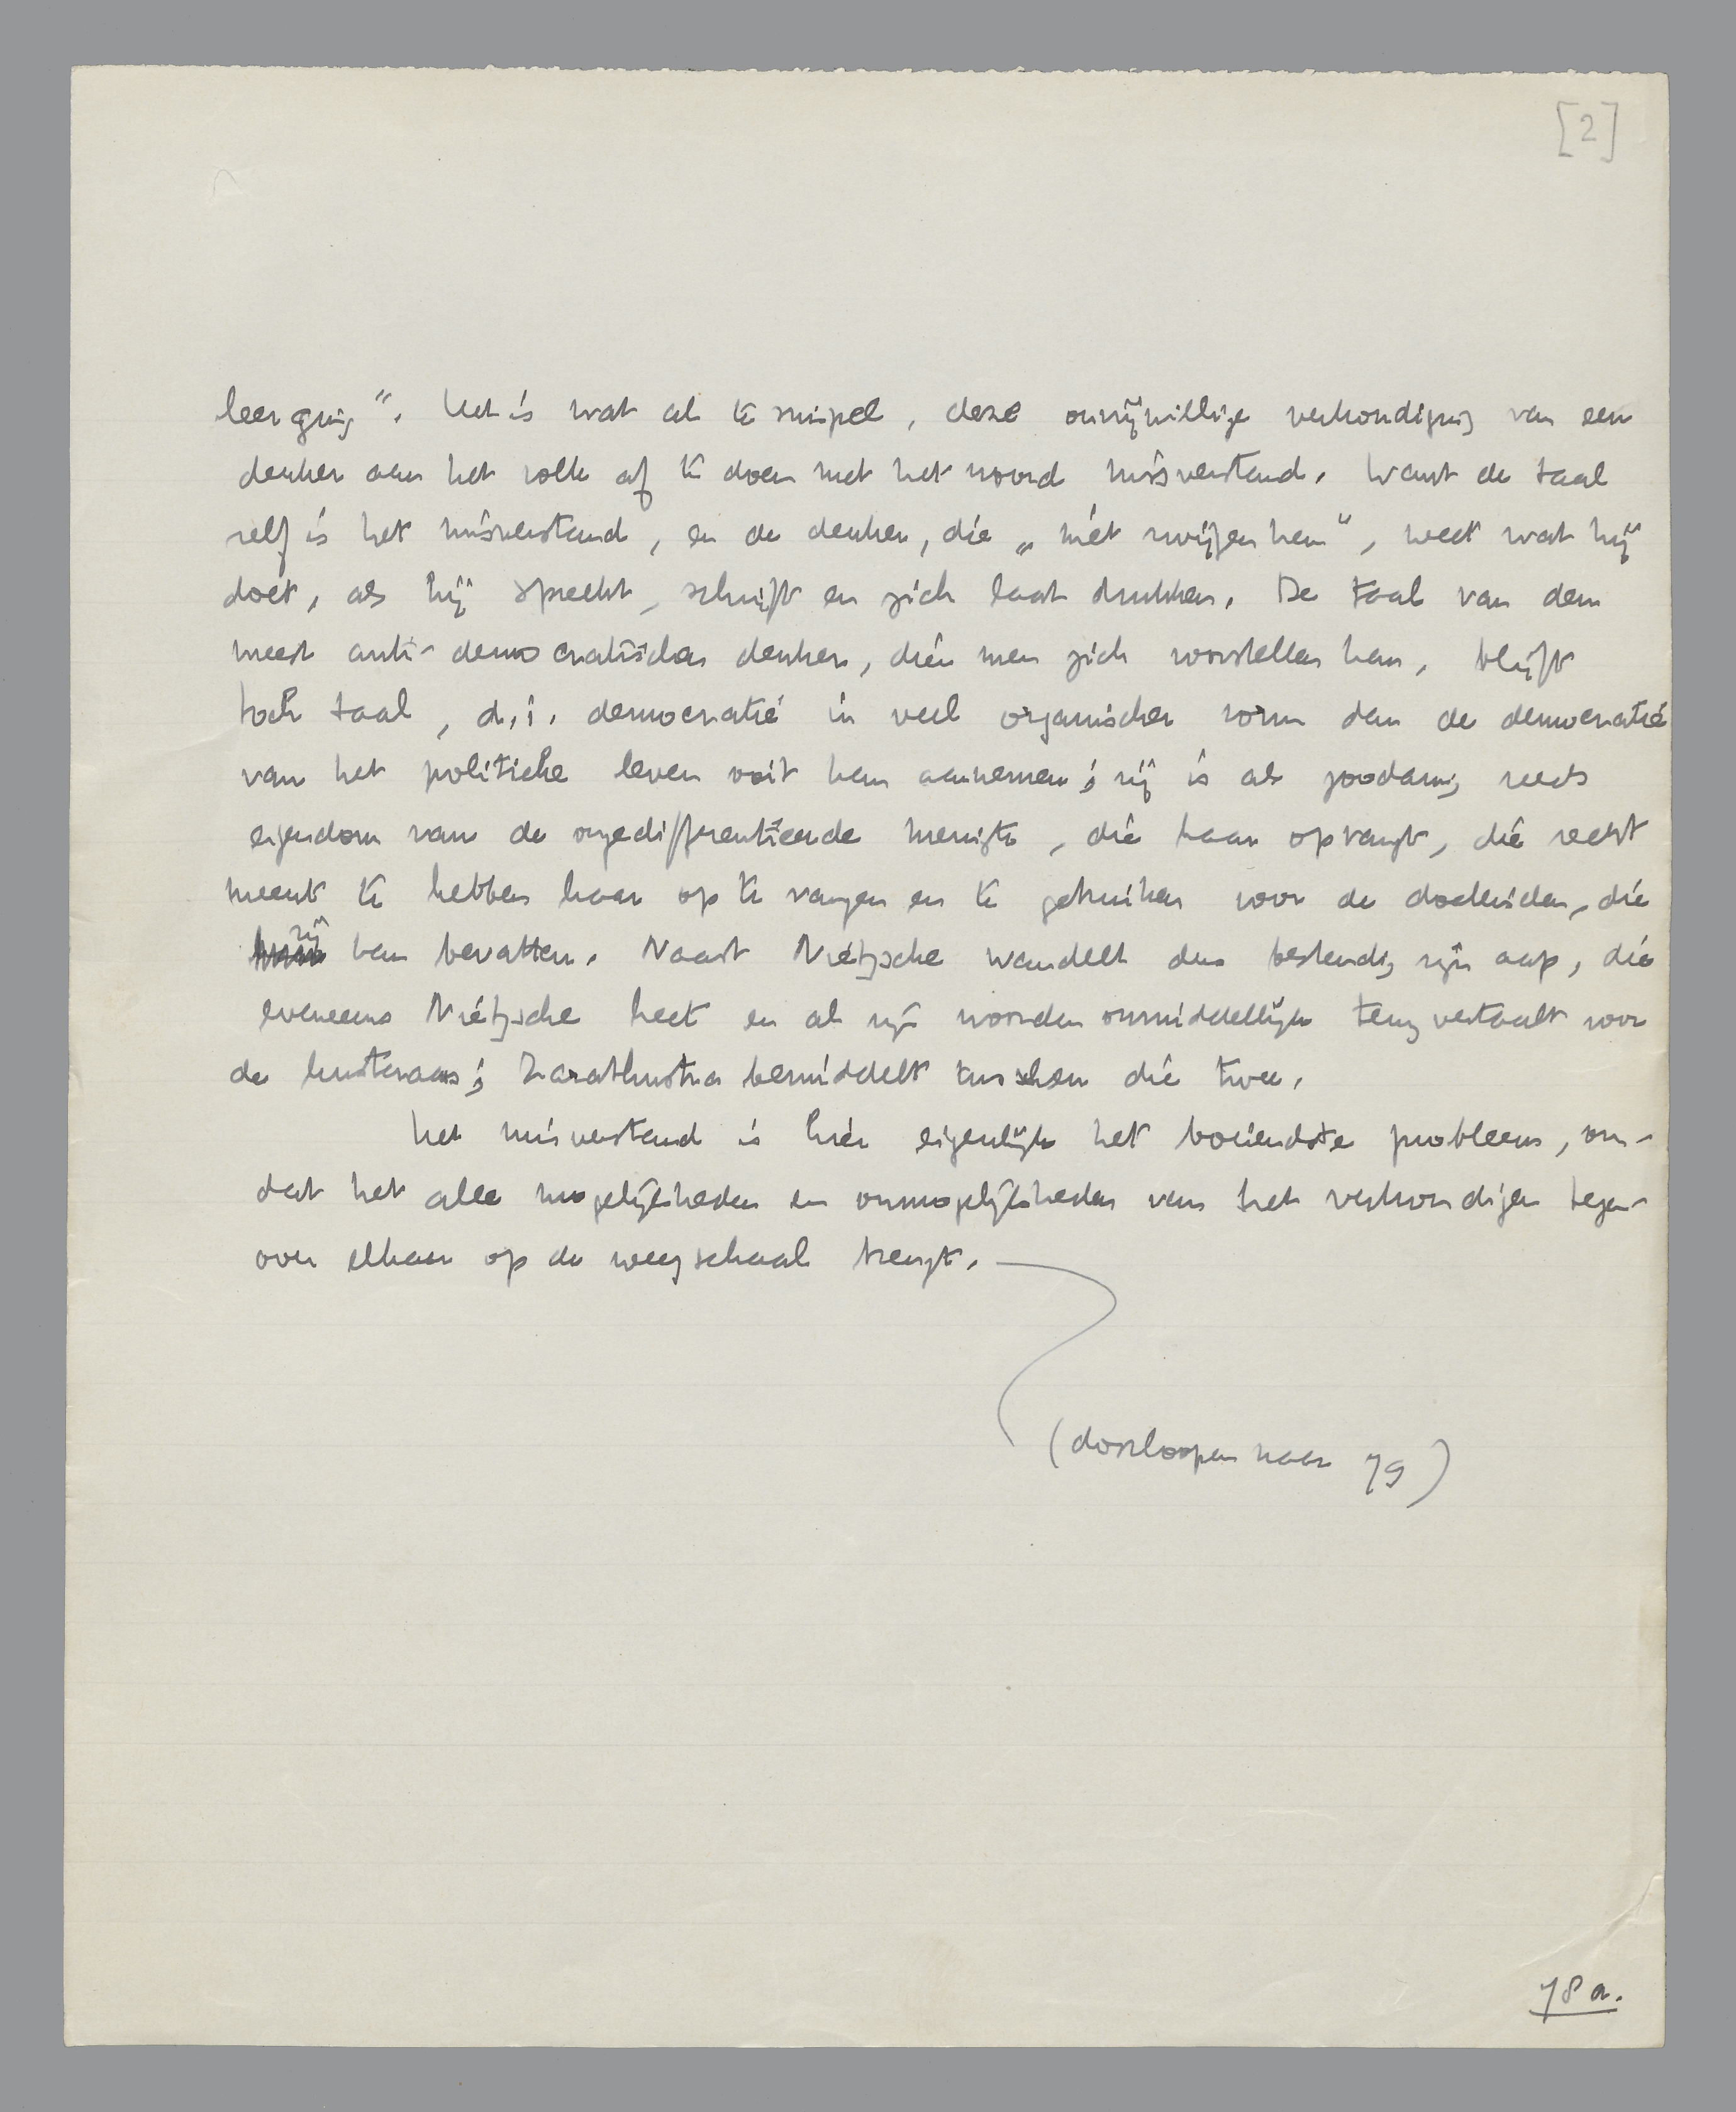 [2]
leerging". Het is wat al te simpel, deze onvrijwillige verkondiging van een
denker aan het volk af te doen met het woord misverstand. Want de taal
zelf is het misverstand, en de denker, die „niet zwijgen kan", weet wat hij
doet, als hij spreekt, schrijft en zich laat drukken. De taal van den
meest anti-democratischen denker, dien men zich voorstellen kan, blijft
toch taal, d.i. democratie in veel organischer vorm dan de democratie
van het politieke leven ooit kan aannemen; zij is als zoodanig reeds
eigendom van de ongedifferentieerde menigte, die haar opvangt, die recht
meent te hebben haar op te vangen en te gebruiken voor de doeleinden, die
zij kan bevatten. Naast Nietzsche wandelt dus bestendig zijn aap, die
eveneens Nietzsche heet en al zijn woorden onmiddellijk terug vertaalt voor
de leeraars; Zarathustra bemiddelt tusschen die twee.
Het misverstand is hier eigenlijk het boeiendste probleem, om-
dat het alle mogelijkheden en onmogelijkheden van het verkondigen tegen-
over elkaar op de weegschaal brengt.
(doorloopen naar 79)
78a.